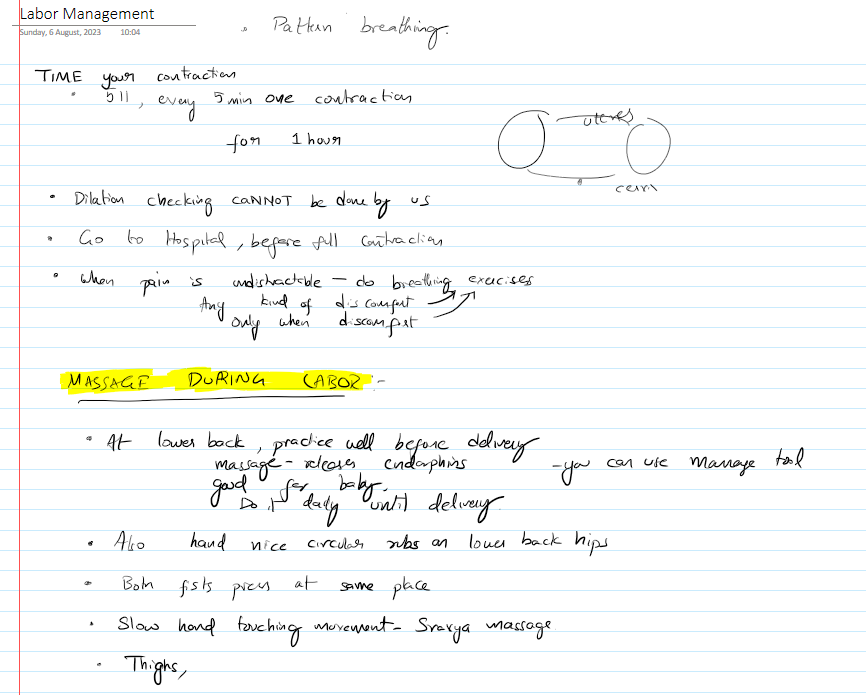 Labor Management
Sunday, 6 August, 2023 10:04
• Pattern breathing.
TIME your contraction
• 511, every 5 min one contraction
for 1 hour
uterus
cervi
• Dilation checking CANNOT be done by us
• Go to Hospital, before full contraction
• when pain is undistractable - do breathing exercises
Any kind of discomfort
only when discomfort
MASSAGE DURING LABOR :-
• At lower back, practice well before delivery
massage - releases endorphins
good for baby.
Do it daily until delivery.
- you can use massage tool
• Also hand nice circular rubs on lower back hips
• Both fists press at same place
• Slow hand touching movement - massage
• Thighs,